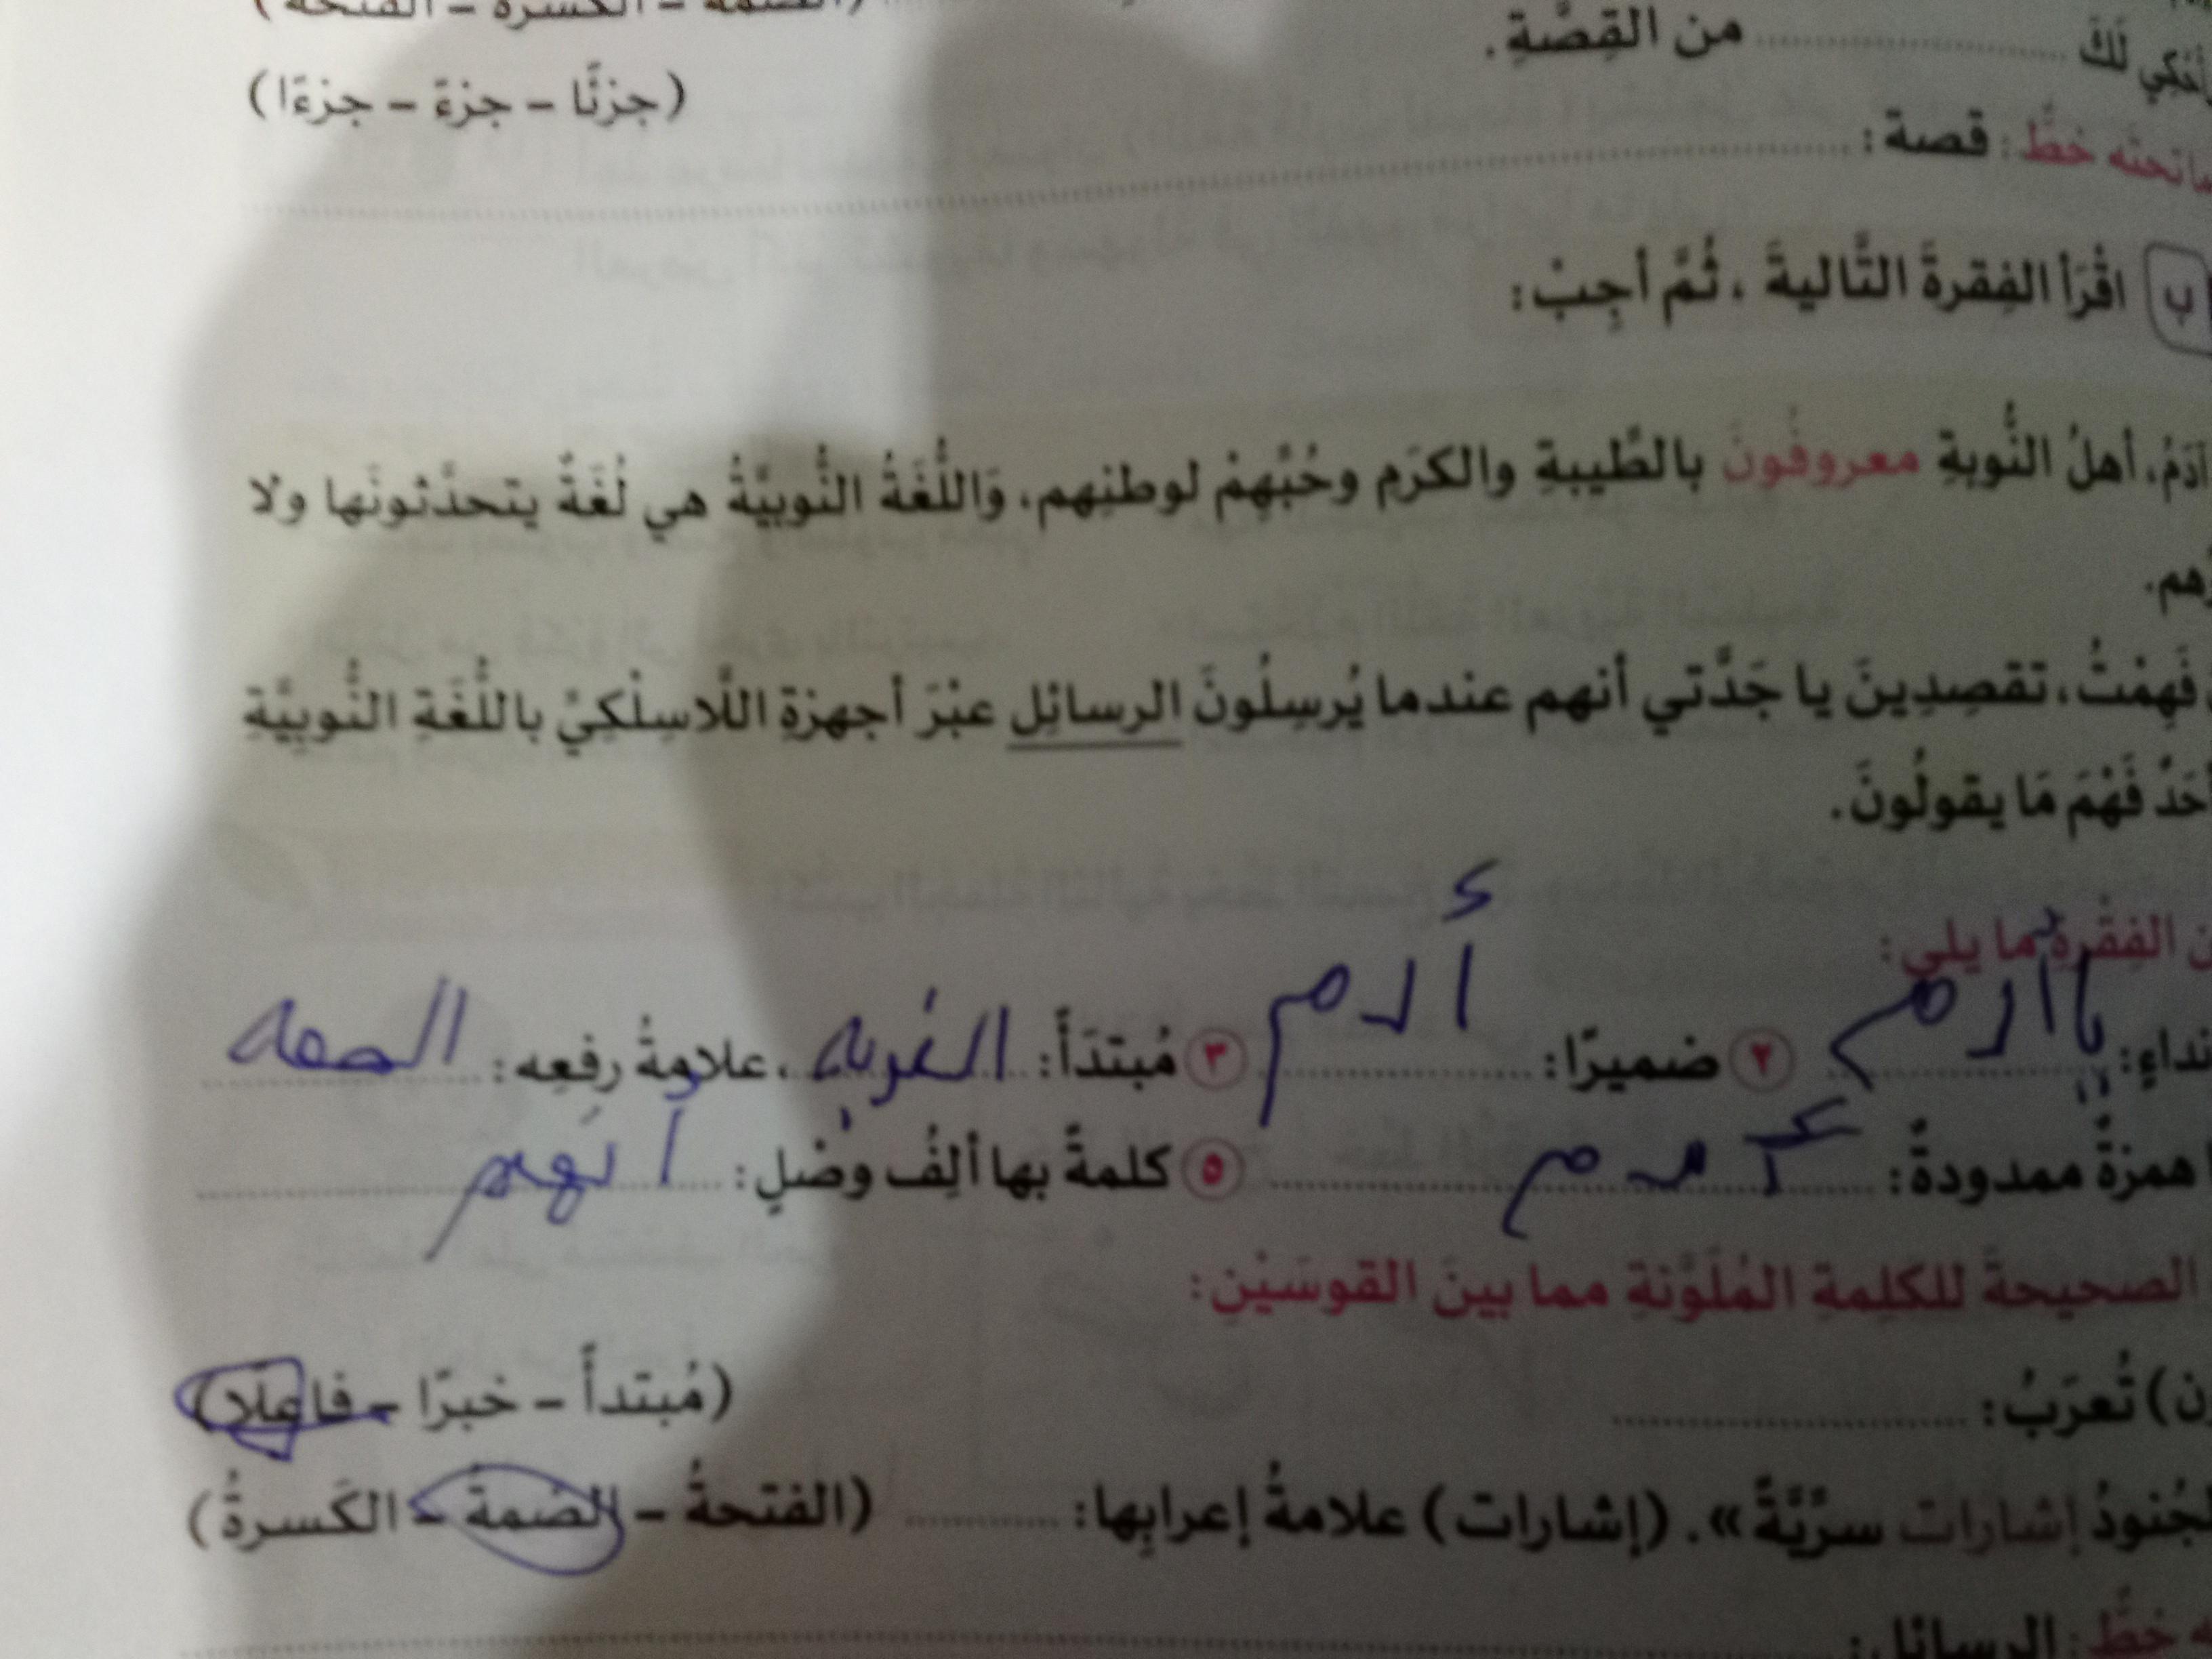 (الضمة - الكسرة - الفتحة)
لَكَ .......... من القِصَّةِ.
(جزئًا - جزءً - جزءًا)
خطٌّ: قصة: ..........
ب اقْرَأ الفِقرةَ التَّاليةَ، ثُمَّ أجِبْ:
أهلُ النُّوبةِ معروفُونَ بالطِّيبةِ والكرَمِ وحُبِّهِمْ لوطنِهم، وَاللُّغَةُ النُّوبِيَّةُ هي لُغَةٌ يتحدَّثونَها ولا
فَهِمْتُ، تقصِدِينَ يا جَدَّتي أنهم عندما يُرسِلُونَ الرسائِل عبْرَ أجهزةِ اللَّاسِلْكِيِّ باللُّغَةِ النُّوبِيَّةِ
فَهْمَ مَا يقولُونَ.
الفِقْرةِ ما يلي:
يا آدم ٢ ضميرًا: أدم ٣ مُبتدَأً: النوبه، علامةُ رفعِه: الضمه
همزةٌ ممدودةٌ: .......... ٥ كلمةً بها ألِفُ وصْلٍ: أنهم
الصحيحةَ للكلِمةِ المُلَوَّنةِ مما بينَ القوسَيْنِ:
تُعرَبُ: .......... (مُبتدأً - خبرًا - فاعلًا)
إشارات سرِّيَّةً». (إشارات) علامةُ إعرابِها: .......... (الفتحةُ - الضمةُ - الكَسرةُ)
خطٌّ: الرسائل: